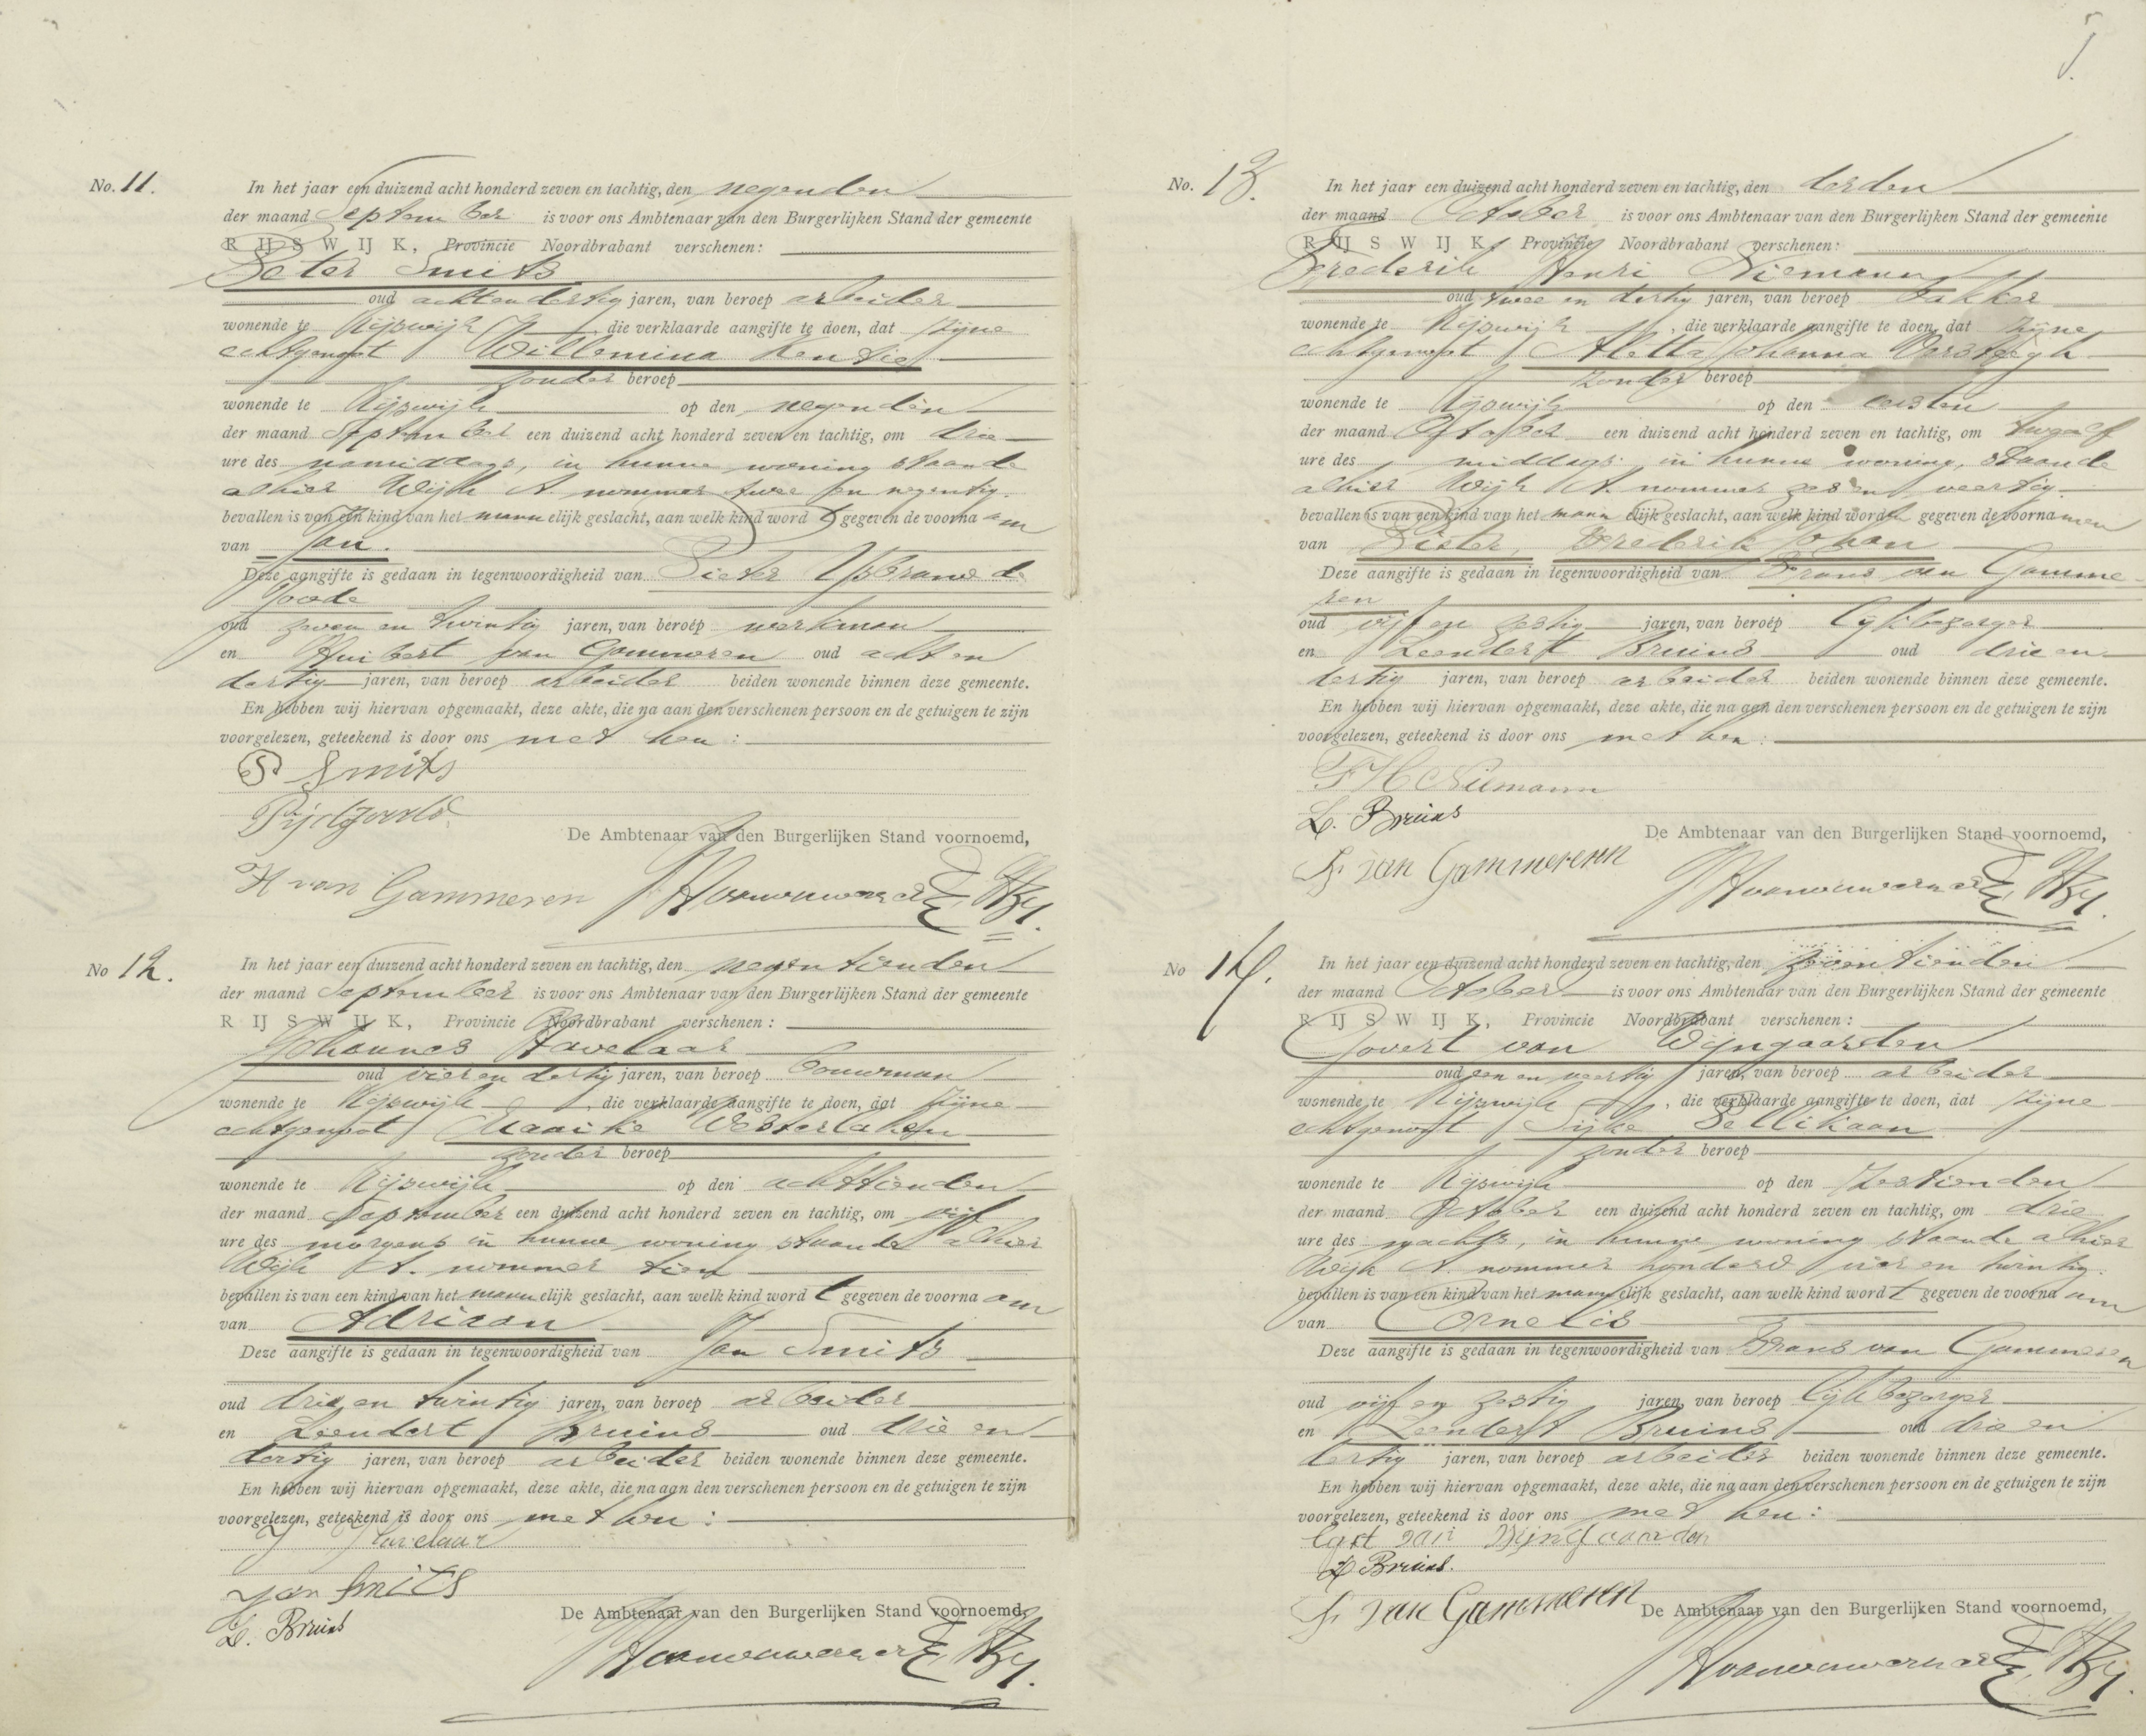 5.
No. 11.
In het jaar een duizend acht honderd zeven en tachtig, den negenden
der maand September is voor ons Ambtenaar van den Burgerlijken Stand der gemeente
RIJSWIJK, Provincie Noordbrabant verschenen:
Peter Smits
oud achtendertig jaren, van beroep arbeider
wonende te Rijswijk, die verklaarde aangifte te doen, dat zijne
echtgenoot Willemina Kentie
zonder beroep
wonende te Rijswijk op den negenden
der maand September een duizend acht honderd zeven en tachtig, om drie
ure des namiddags, in hunne woning staande
alhier Wijk A. nommer twee en negentig.
bevallen is van een kind van het mannelijk geslacht, aan welk kind wordt gegeven de voornaam
van Jan.
Deze aangifte is gedaan in tegenwoordigheid van Pieter IJsbrand de
Joode
oud zeven en twintig jaren, van beroep werkman
en Huibert van Gammeren oud acht en
dertig jaren, van beroep arbeider beiden wonende binnen deze gemeente.
En hebben wij hiervan opgemaakt, deze akte, die na aan den verschenen persoon en de getuigen te zijn
voorgelezen, geteekend is door ons met hen:
P Smits
De Ambtenaar van den Burgerlijken Stand voornoemd,
H van Gammeren
No 12.
In het jaar een duizend acht honderd zeven en tachtig, den negentienden
der maand September is voor ons Ambtenaar van den Burgerlijken Stand der gemeente
RIJSWIJK, Provincie Noordbrabant verschenen:
Johannes Havelaar
oud vier en dertig jaren, van beroep bouwman
wonende te Rijswijk, die verklaarde aangifte te doen, dat zijne
echtgenoot Maaike Westerlaken
zonder beroep
wonende te Rijswijk op den achttienden
der maand September een duizend acht honderd zeven en tachtig, om vijf
ure des morgens in hunne woning staande alhier
Wijk A. nommer tien
bevallen is van een kind van het mannelijk geslacht, aan welk kind wordt gegeven de voornaam
van Adriaan
Deze aangifte is gedaan in tegenwoordigheid van Jan Smits
oud drie en twintig jaren, van beroep arbeider
en Leendert Bruins oud drie en
dertig jaren, van beroep arbeider beiden wonende binnen deze gemeente.
En hebben wij hiervan opgemaakt, deze akte, die na aan den verschenen persoon en de getuigen te zijn
voorgelezen, geteekend is door ons met hen:
J Havelaar
Jan Smits
L. Bruins
De Ambtenaar van den Burgerlijken Stand voornoemd,
No. 13.
In het jaar een duizend acht honderd zeven en tachtig, den derden
der maand October is voor ons Ambtenaar van den Burgerlijken Stand der gemeente
RIJSWIJK, Provincie Noordbrabant verschenen:
Frederik Henri Niemann
oud twee en dertig jaren, van beroep bakker
wonende te Rijswijk, die verklaarde aangifte te doen, dat zijne
echtgenoot Aletta Johanna Versteegh
zonder beroep
wonende te Rijswijk op den eersten
der maand October een duizend acht honderd zeven en tachtig, om twaalf
ure des middags in hunne woning, staande
alhier Wijk A. nommer zes en veertig.
bevallen is van een kind van het mannelijk geslacht, aan welk kind worden gegeven de voornamen
van Pieter, Frederik Johan
Deze aangifte is gedaan in tegenwoordigheid van Frans van Gamme-
ren
oud vijf en zestig jaren, van beroep lijkbezorger
en Leendert Bruins oud drie en
dertig jaren, van beroep arbeider beiden wonende binnen deze gemeente.
En hebben wij hiervan opgemaakt, deze akte, die na aan den verschenen persoon en de getuigen te zijn
voorgelezen, geteekend is door ons met hen:
F H Niemann
L. Bruins
De Ambtenaar van den Burgerlijken Stand voornoemd,
F. van Gammeren
No 14.
In het jaar een duizend acht honderd zeven en tachtig, den zeventienden
der maand October is voor ons Ambtenaar van den Burgerlijken Stand der gemeente
RIJSWIJK, Provincie Noordbrabant verschenen:
Govert van Wijngaarden
oud een en veertig jaren, van beroep arbeider
wonende te Rijswijk, die verklaarde aangifte te doen, dat zijne
echtgenoot Sijke Pellikaan
zonder beroep
wonende te Rijswijk op den zestienden
der maand October een duizend acht honderd zeven en tachtig, om drie
ure des nachts, in hunne woning staande alhier
Wijk A. nommer honderd vier en twintig.
bevallen is van een kind van het mannelijk geslacht, aan welk kind wordt gegeven de voornaam
van Cornelis
Deze aangifte is gedaan in tegenwoordigheid van Frans van Gammeren
oud vijf en zestig jaren, van beroep lijkbezorger
en Leendert Bruins oud drie en
dertig jaren, van beroep arbeider beiden wonende binnen deze gemeente.
En hebben wij hiervan opgemaakt, deze akte, die na aan den verschenen persoon en de getuigen te zijn
voorgelezen, geteekend is door ons met hen:
van Wijngaarden
L Bruins.
F. van Gammeren
De Ambtenaar van den Burgerlijken Stand voornoemd,